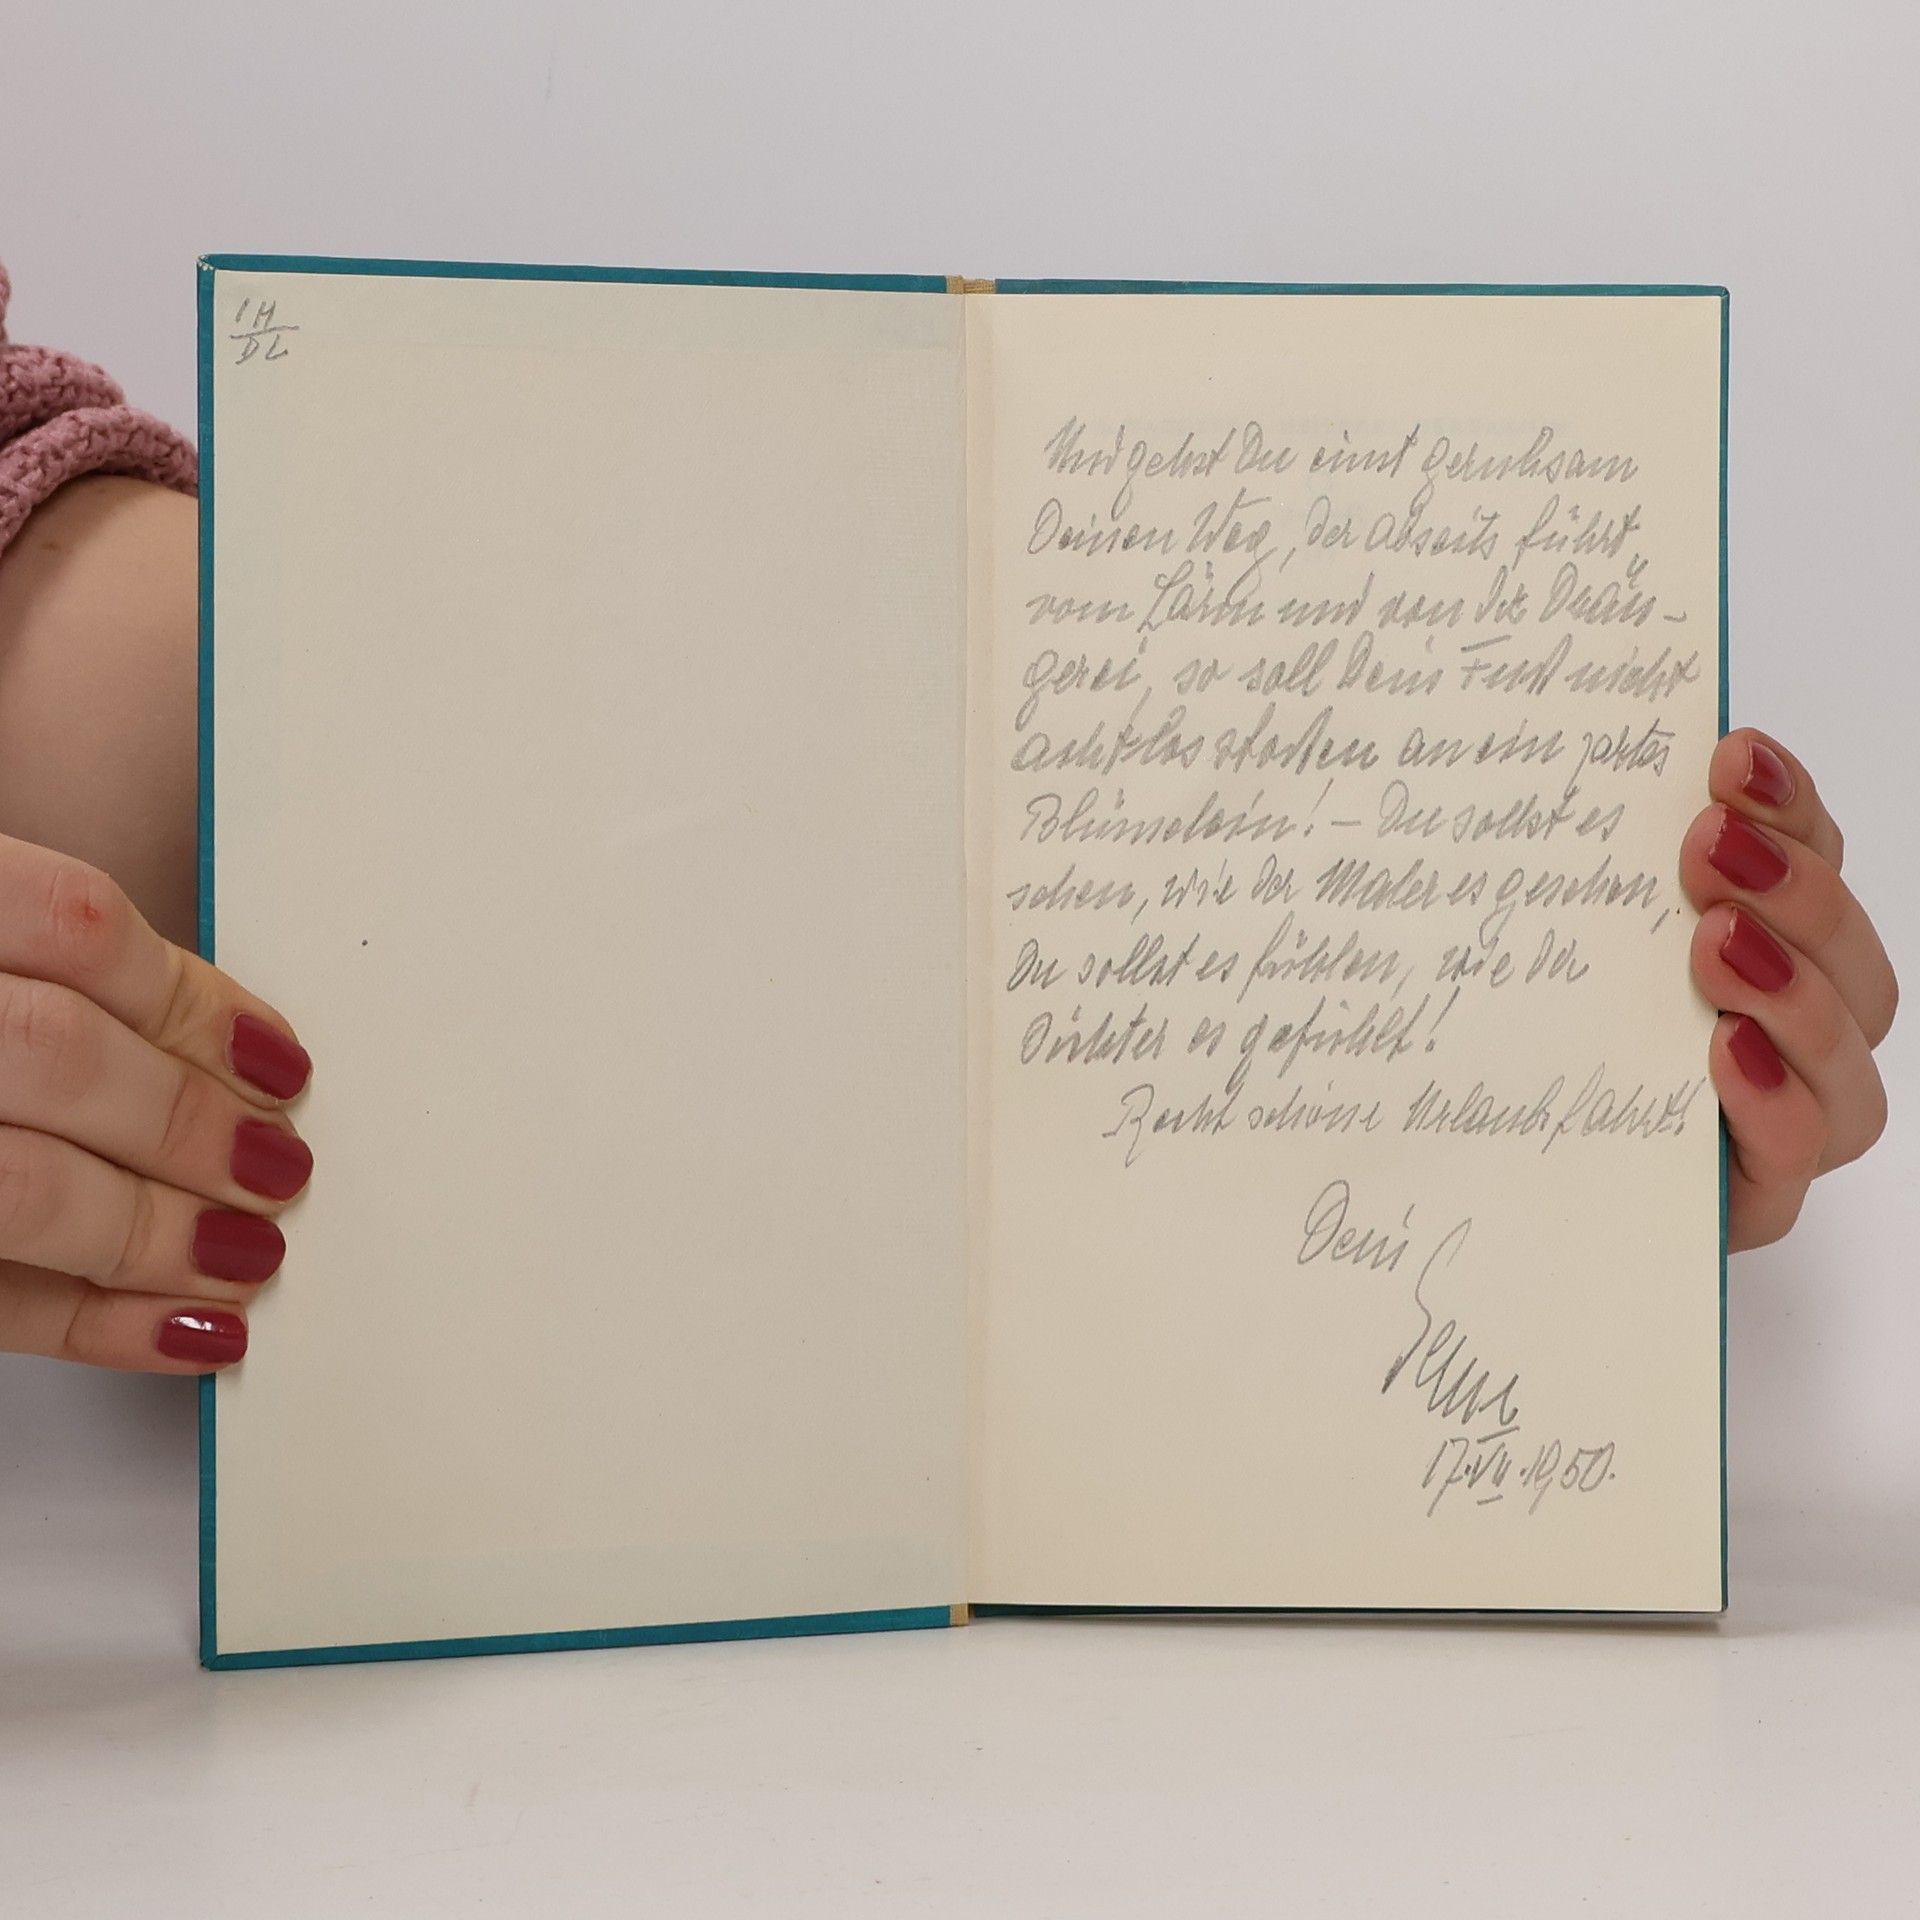 1 H
DL
Und gehst Du einst geruhsam
Deinen Weg, der abseits führt,
vom Lärm und von der Drän-
gerei, so soll Dein Fuß nicht
achtlos stoßen an ein zartes
Blümelein! – Du sollst es
sehen, wie der Maler es gesehen,
Du sollst es fühlen, wie der
Dichter es gefühlt!
Recht schöne Urlaubsfahrt!
Dein
17.VII.1950.